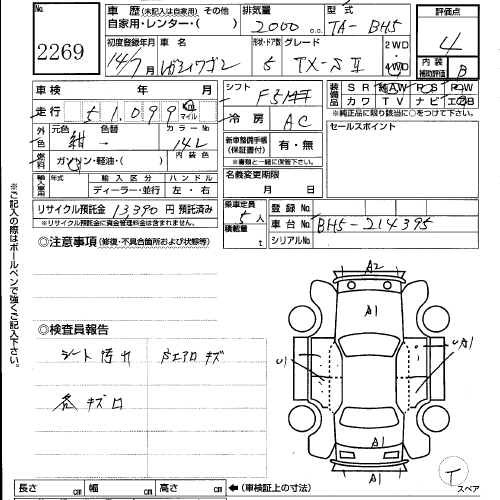 No. 車歴 (未記入は自家用) その他 排気量 型式 評価点
2269 自家用・レンター・( ) 2000 c.c. TA-BH5 4
初度登録年月 車名 形状・ドア数 グレード 2WD 内装
14/7 レガシィワゴン 5 TX-S II 4WD 補助評価 B
車検 年 月 シフト F5 装備品 SR AW PS PW
走行 51,099 km マイル 冷房 AC カワ TV ナビ エアB
※純正品に限り該当に○をつけて下さい。
外色 元色 色替 カラーNo 新車整備手帳 (保証書付) 有・無 セールスポイント
紺 → 14L ※書類と一緒に保管下さい。
燃料 ガソリン・軽油・( ) 内装色 名義変更期限
輸入車用 年式 輸入区分 ハンドル 月 日
ディーラー・並行 左・右
リサイクル預託金 13390 円 預託済み 乗車定員 5人 登録No.
※リサイクル預託金に資金管理料金は含まれません。 積載量 t 車台No. BH5-214395
シリアルNo.
◎注意事項 (修復・不具合箇所および状態等)
※ご記入の際はボールペンで強くご記入下さい。
A2
A1
A1
◎検査員報告
シート汚れ Rエアロキズ U1 UA1
各キズ
A1
T
長さ cm 幅 cm 高さ cm ←(車検証上の寸法) スペア